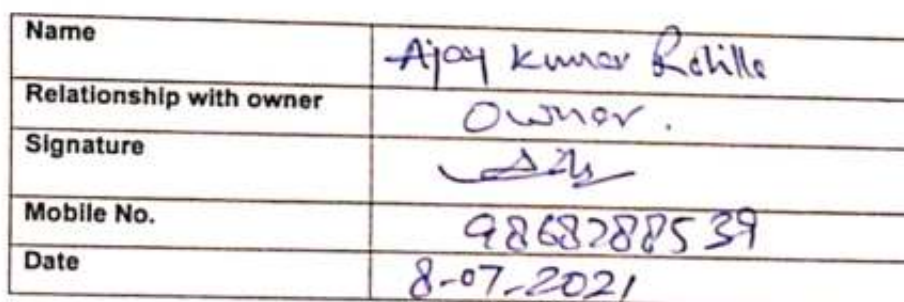 Name Ajay Kumar Rohilla
Relationship with owner Owner.
Signature
Mobile No. 9868788539
Date 8-07-2021